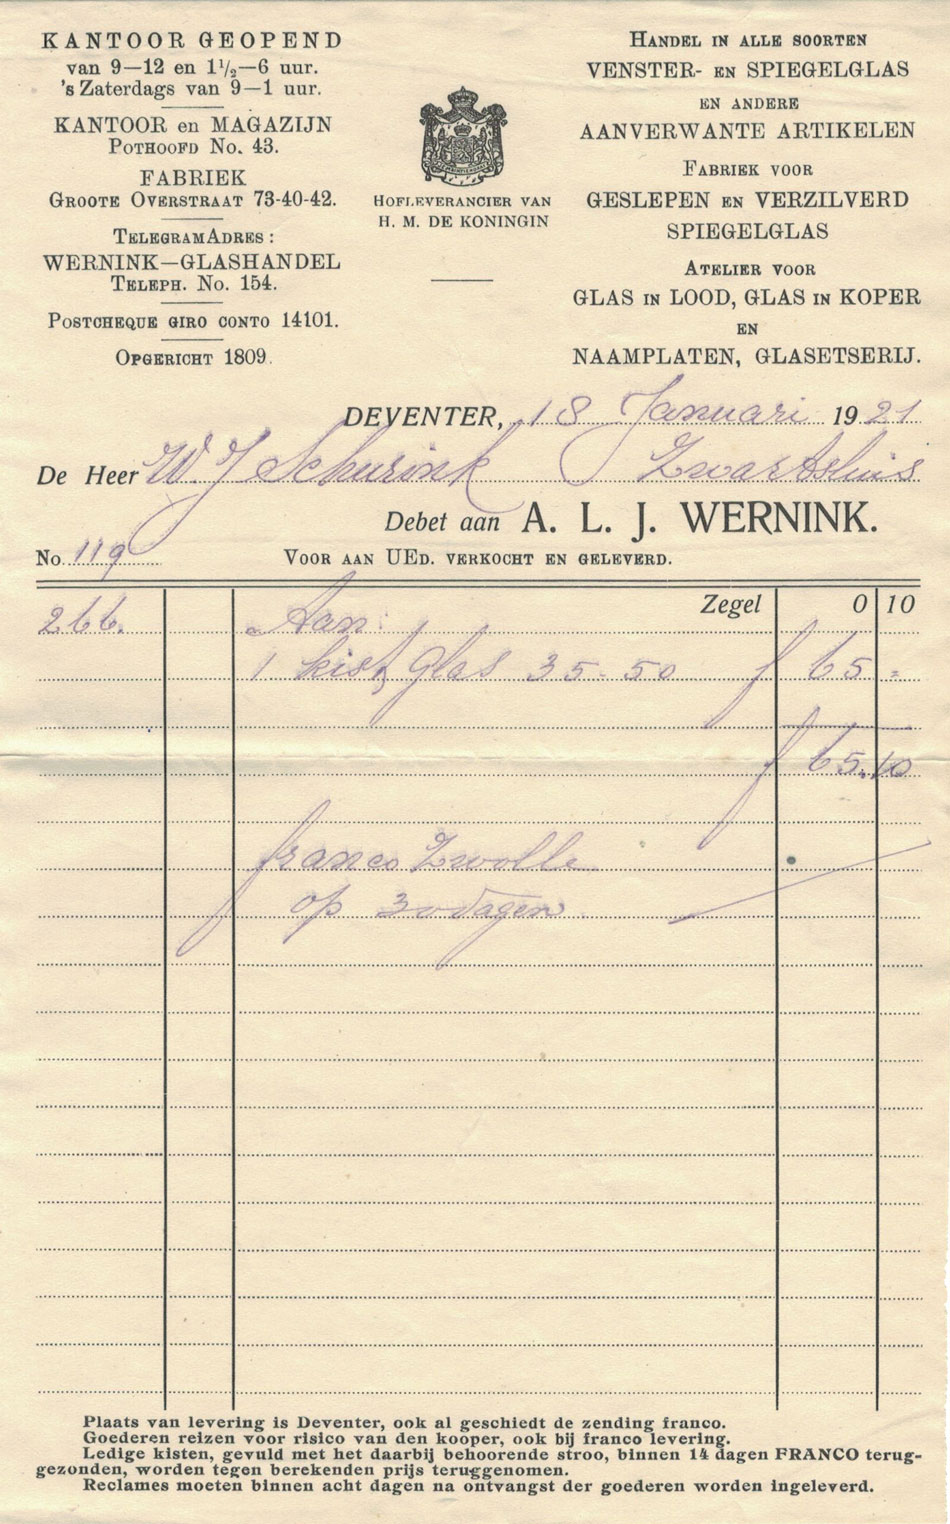 KANTOOR GEOPEND
van 9—12 en 1½—6 uur.
's Zaterdags van 9—1 uur.
KANTOOR en MAGAZIJN
POTHOOFD No. 43.
FABRIEK
GROOTE OVERSTRAAT 73-40-42.
TELEGRAMADRES:
WERNINK—GLASHANDEL
TELEPH. No. 154.
POSTCHEQUE GIRO CONTO 14101.
OPGERICHT 1809.
HOFLEVERANCIER VAN
H. M. DE KONINGIN
HANDEL IN ALLE SOORTEN
VENSTER- EN SPIEGELGLAS
EN ANDERE
AANVERWANTE ARTIKELEN
FABRIEK VOOR
GESLEPEN EN VERZILVERD
SPIEGELGLAS
ATELIER VOOR
GLAS IN LOOD, GLAS IN KOPER
EN
NAAMPLATEN, GLASETSERIJ.
DEVENTER, 18 Januari 1921
De Heer W. J Schurink Zwartsluis
Debet aan A. L. J. WERNINK.
No. 119 VOOR AAN UED. VERKOCHT EN GELEVERD.
Zegel 0 10
266. Aan:
1 kist glas 35-50 f 65 =
f 65.10
franco Zwolle
op 30 dagen
Plaats van levering is Deventer, ook al geschiedt de zending franco.
Goederen reizen voor risico van den kooper, ook bij franco levering.
Ledige kisten, gevuld met het daarbij behoorende stroo, binnen 14 dagen FRANCO terug-
gezonden, worden tegen berekenden prijs teruggenomen.
Reclames moeten binnen acht dagen na ontvangst der goederen worden ingeleverd.